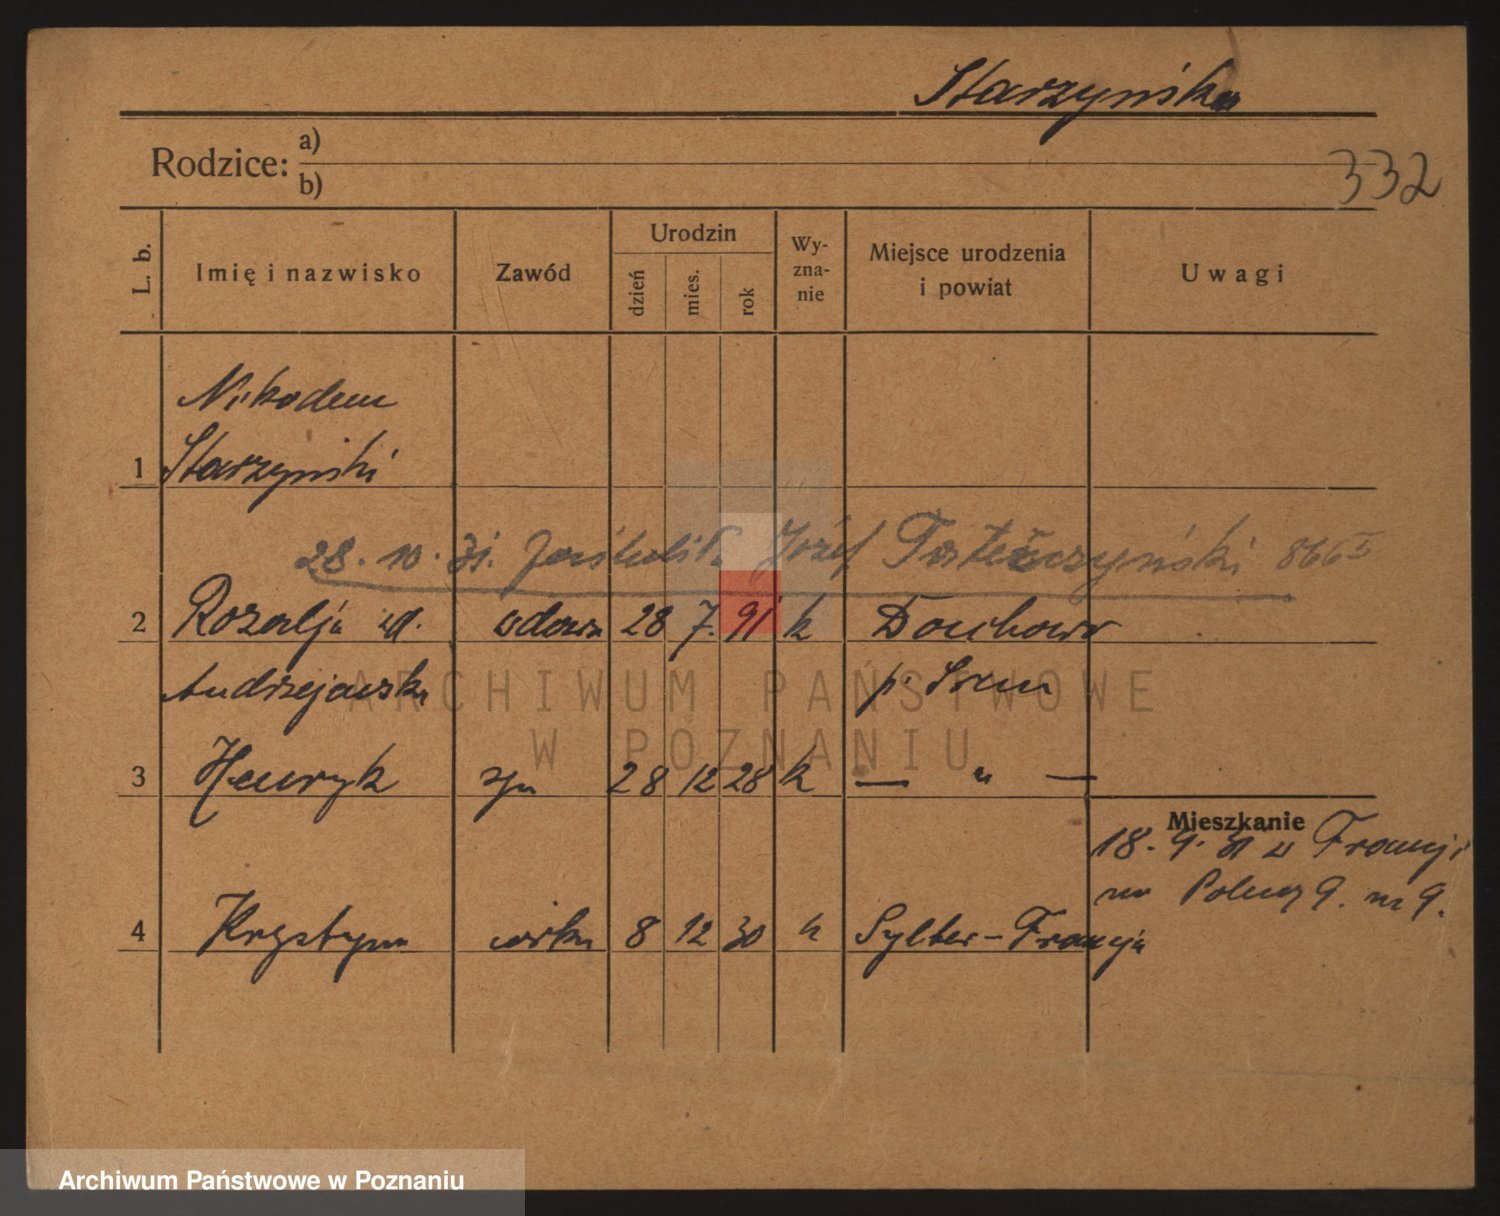 Starzyńska
332
Rodzice:
a)
b)
L. b.
Imię i nazwisko
Zawód
Urodzin
dzień
mies.
rok
Wy-
zna-
nie
Miejsce urodzenia
i powiat
Uwagi
Nikodem
1 Starzyński
28. 10. 31. Józef
2 Rozalja wdowa 28 7. 91 k
Andrzejewska p. Śrem
3 Henryk syn 28 12 28 k — " —
Mieszkanie
18. 9. 31 z Francji
9. m 9.
4 Krystyna córka 8 12 30 k Sylter - Francja
ARCHIWUM PAŃSTWOWE
W POZNANIU
Archiwum Państwowe w Poznaniu